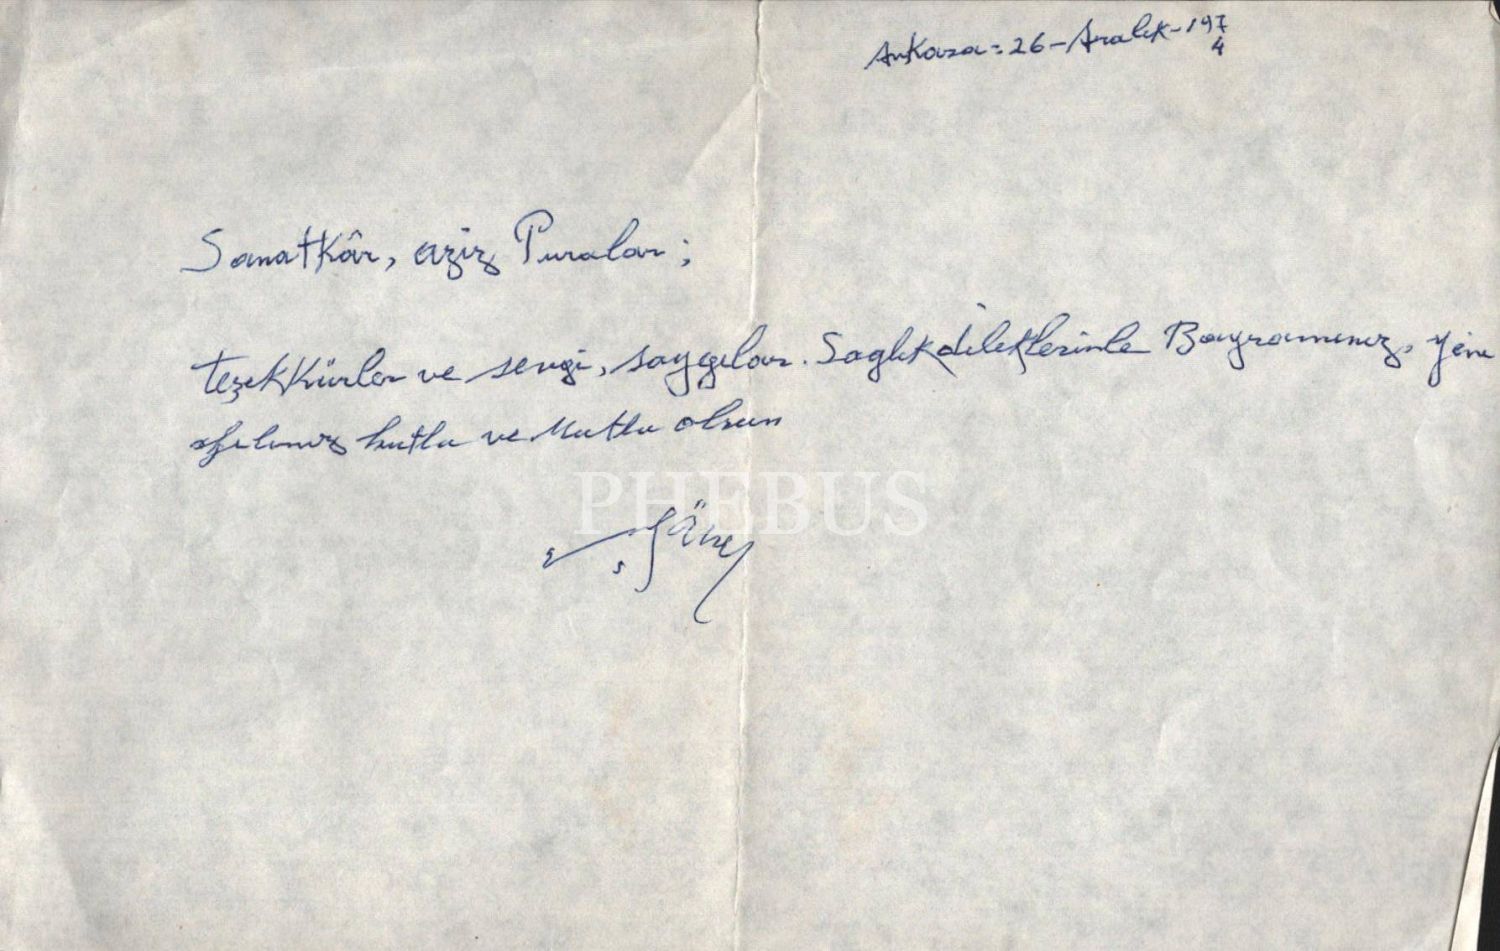 Ankara = 26 - Aralık - 1974
Sanatkâr, aziz Puralar;
teşekkürler ve sevgi, saygılar. Sağlık dileklerimle Bayramınız, yeni
yılınız kutlu ve Mutlu olsun
PHEBUS